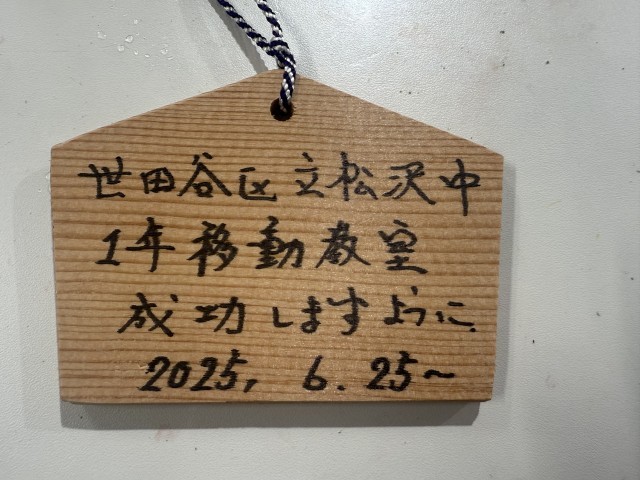 世田谷区立松沢中
1年移動教室
成功しますように.
2025, 6. 25～